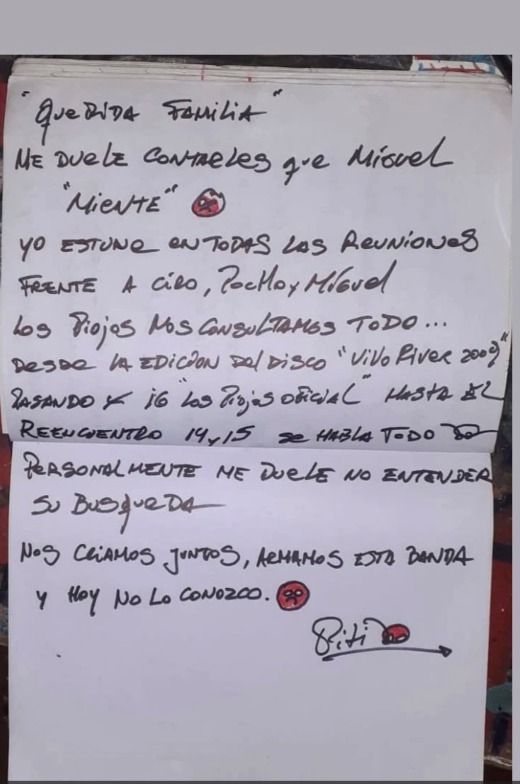 "QUERIDA FAMILIA"
ME DUELE CONTARLES que MIGUEL
"MIENTE"
YO ESTUVE EN TODAS LAS REUNIONES
FRENTE A CIRO, POCHO y MIGUEL
LOS PIOJOS NOS CONSULTAMOS TODO...
DESDE LA EDICION DEL DISCO "VIVO RIVER 2009"
PASANDO X IG "LOS PIOJOS OFICIAL" HASTA EL
REENCUENTRO 14 y 15 SE HABLA TODO
PERSONALMENTE ME DUELE NO ENTENDER
SU BUSQUEDA
NOS CRIAMOS JUNTOS, ARMAMOS ESTA BANDA
Y HOY NO LO CONOZCO.
Piti